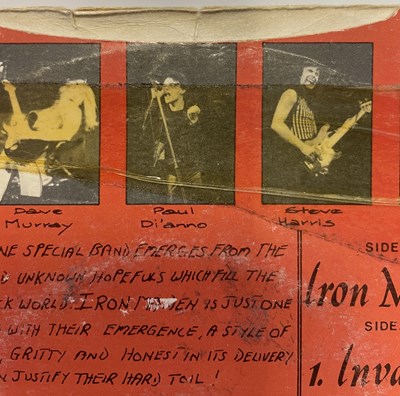 Dave Murray
Paul Di'anno
Steve Harris
NE SPECIAL BAND EMERGES FROM THE
D UNKNOWN HOPEFULS WHICH FILL THE
CK WORLD. IRON MAIDEN IS JUST ONE
WITH THEIR EMERGENCE, A STYLE OF
, GRITTY AND HONEST IN ITS DELIVERY
N JUSTIFY THEIR HARD TOIL !
SIDE
Iron M
SIDE
1. Inva